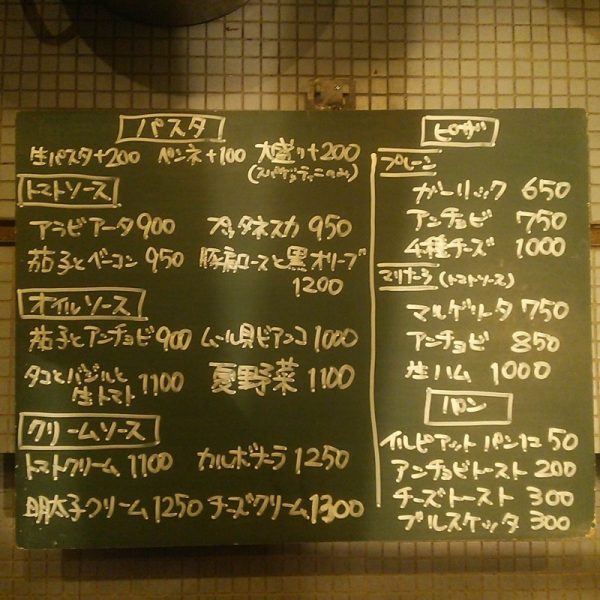 パスタ
生パスタ+200 ペンネ+100 大盛り+200
(スパゲッティーニのみ)
トマトソース
アラビアータ900 プッタネスカ 950
茄子とベーコン 950 豚肩ロースと黒オリーブ
1200
オイルソース
茄子とアンチョビ900 ムール貝ビアンコ 1000
タコとバジルと
生トマト 1100 夏野菜 1100
クリームソース
トマトクリーム 1100 カルボナーラ 1250
明太子クリーム 1250 チーズクリーム 1300
ピザ
プレーン
ガーリック 650
アンチョビ 750
4種チーズ 1000
マリナーラ (トマトソース)
マルゲリータ 750
アンチョビ 850
生ハム 1000
パン
イルピアット パン1コ 50
アンチョビトースト 200
チーズトースト 300
ブルスケッタ 300